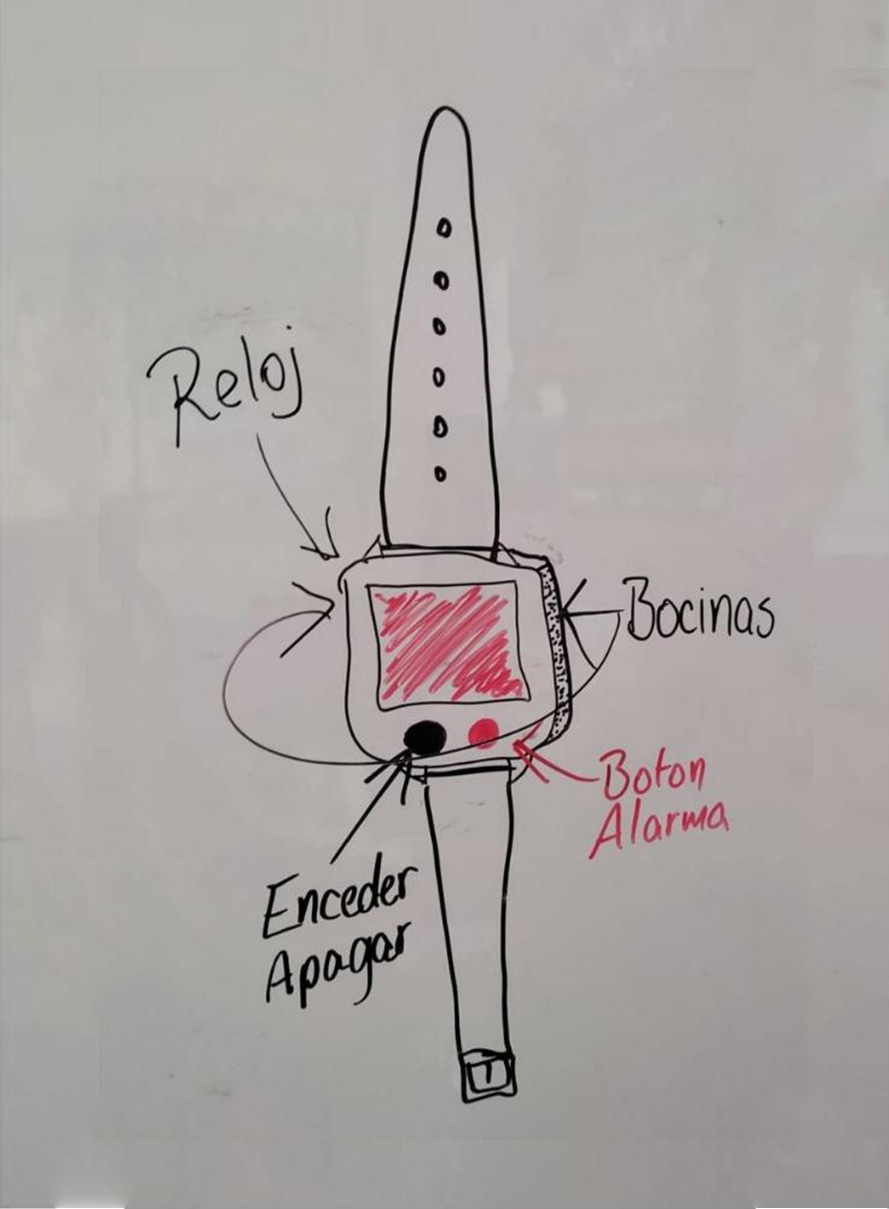 Reloj
Bocinas
Boton
Alarma
Enceder
Apagar